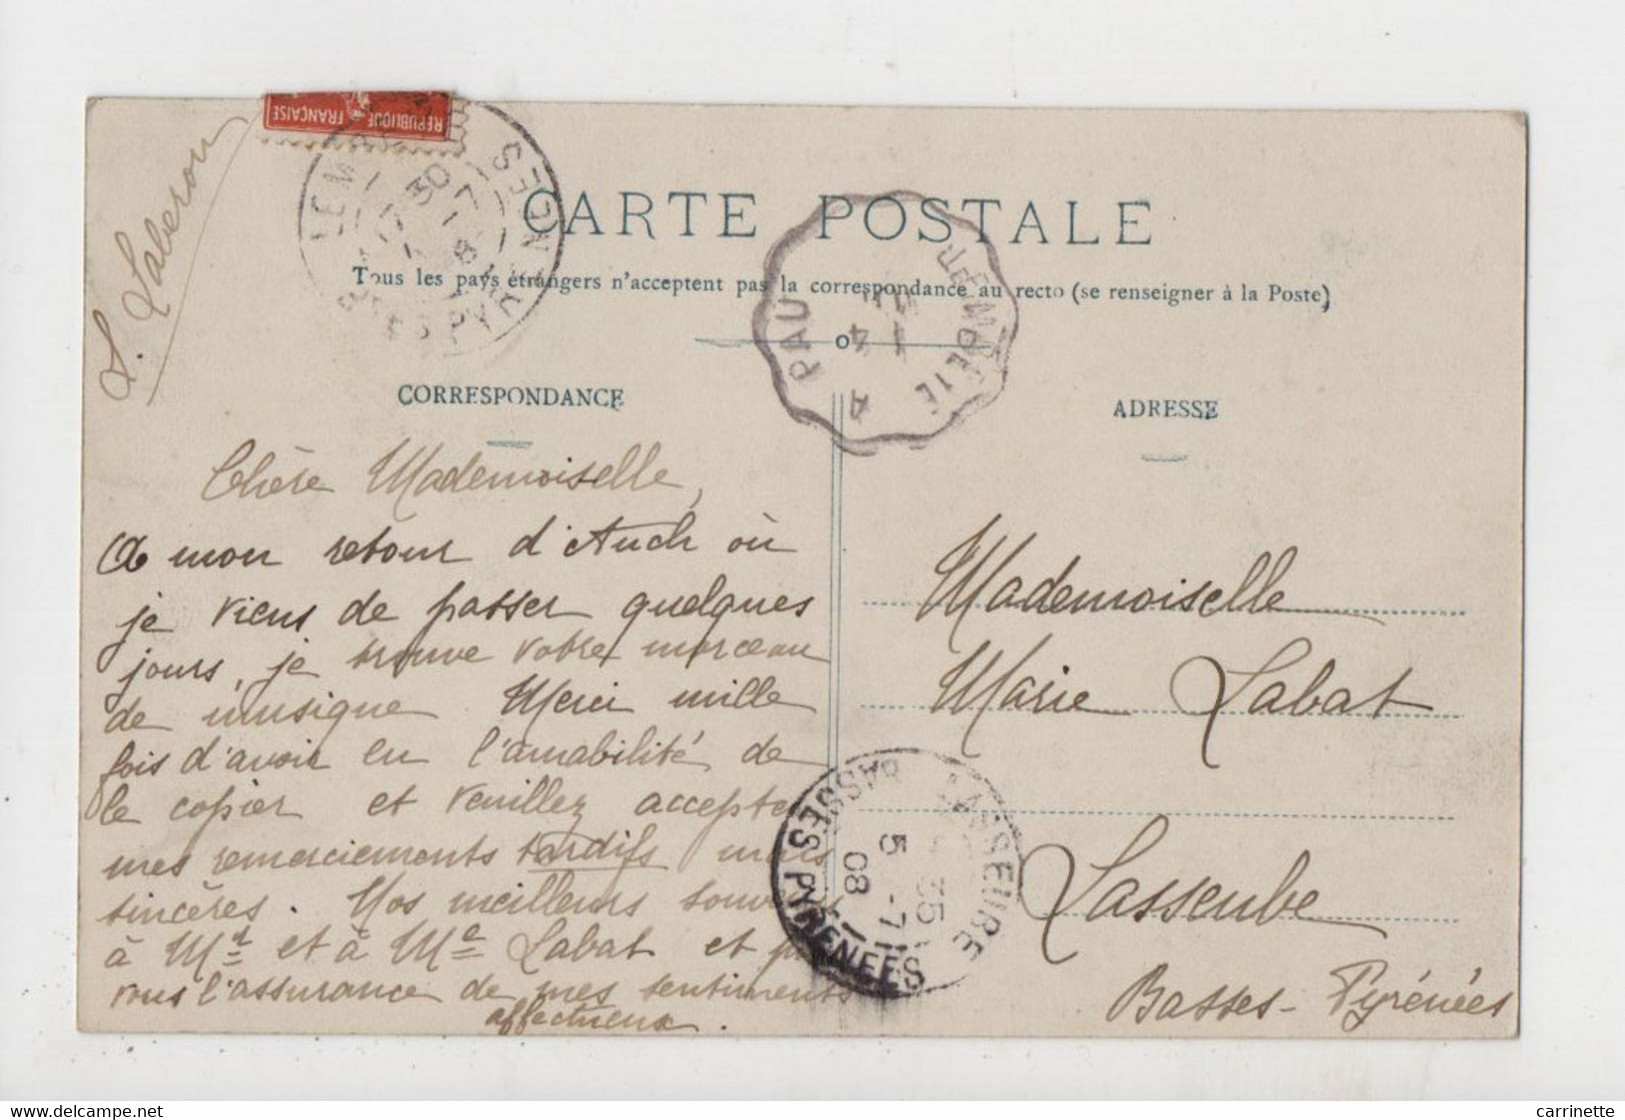 RÉPUBLIQUE FRANÇAISE
S. Laberou
CARTE POSTALE
Tous les pays étrangers n'acceptent pas la correspondance au recto (se renseigner à la Poste)
PAU A
1 4
CORRESPONDANCE
ADRESSE
Chère Mademoiselle,
A mon retour d'Auch où
je viens de passer quelques
jours, je trouve votre morceau
de musique. Merci mille
fois d'avoir eu l'amabilité de
le copier et veuillez accepter
mes remerciements tardifs mais
sincères. Nos meilleurs souvenirs
à Mr et à Me Labat et p
vous l'assurance de mes sentiments
affectueux.
Mademoiselle
Marie Labat
Lasseube
Basses-Pyrénées
LASSEUBE
35
5 -7
08
BASSES PYRENEES
carrinette